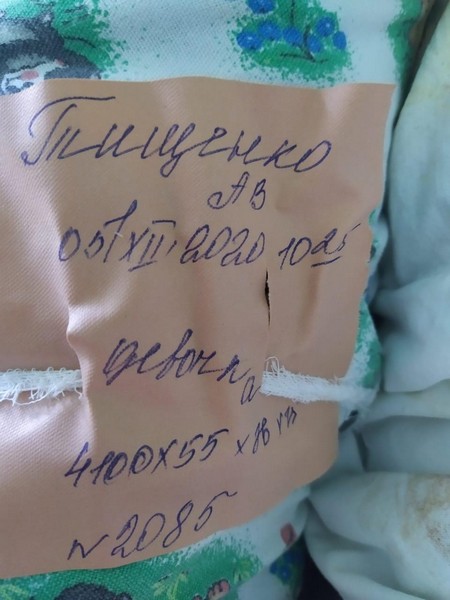 Тищенко
АВ
05/XII.2020 10 25
девочка
4100х55
N 2085